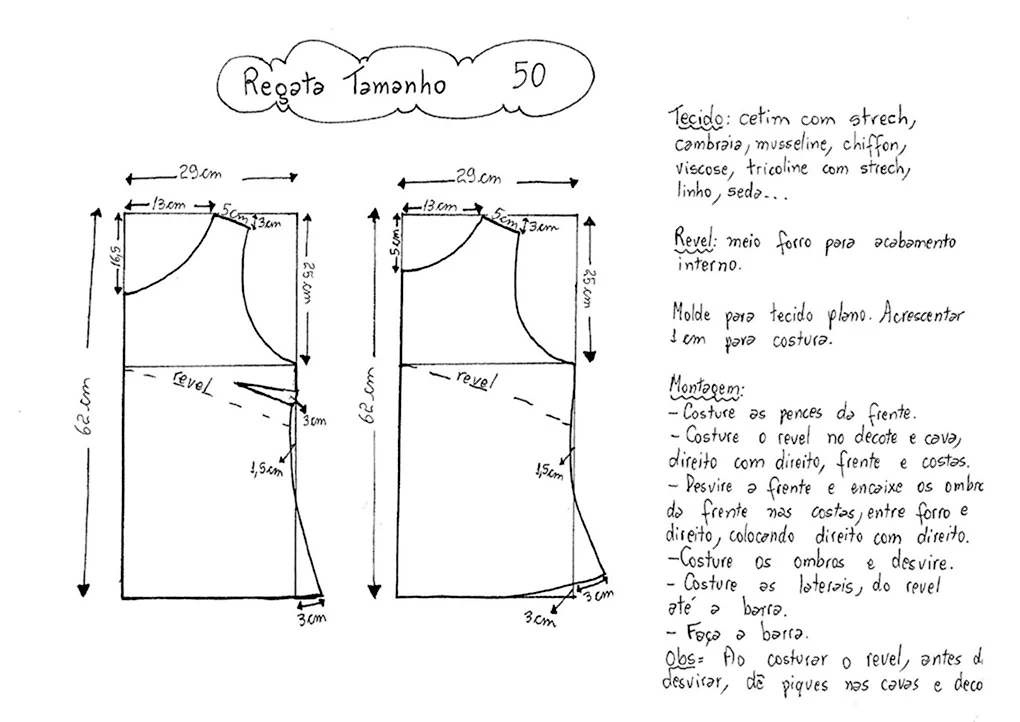 Regata Tamanho 50
29cm
13cm
5cm
3cm
16,5
25cm
62cm
revel
3cm
1,5cm
3cm
29cm
13cm
5cm
3cm
5cm
25cm
62cm
revel
1,5cm
3cm
3cm
Tecido: cetim com strech,
cambraia, musseline, chiffon,
viscose, tricoline com strech,
linho, seda...
Revel: meio forro para acabamento
interno.
Molde para tecido plano. Acrescentar
1 cm para costura.
Montagem:
- Costure as pences da frente.
- Costure o revel no decote e cava,
direito com direito, frente e costas.
- Desvire a frente e encaixe os ombr
da frente nas costas, entre forro e
direito, colocando direito com direito.
- Costure os ombros e desvire.
- Costure as laterais, do revel
até a barra.
- Faça a barra.
Obs= Ao costurar o revel, antes d
desvirar, dê piques nas cavas e deco